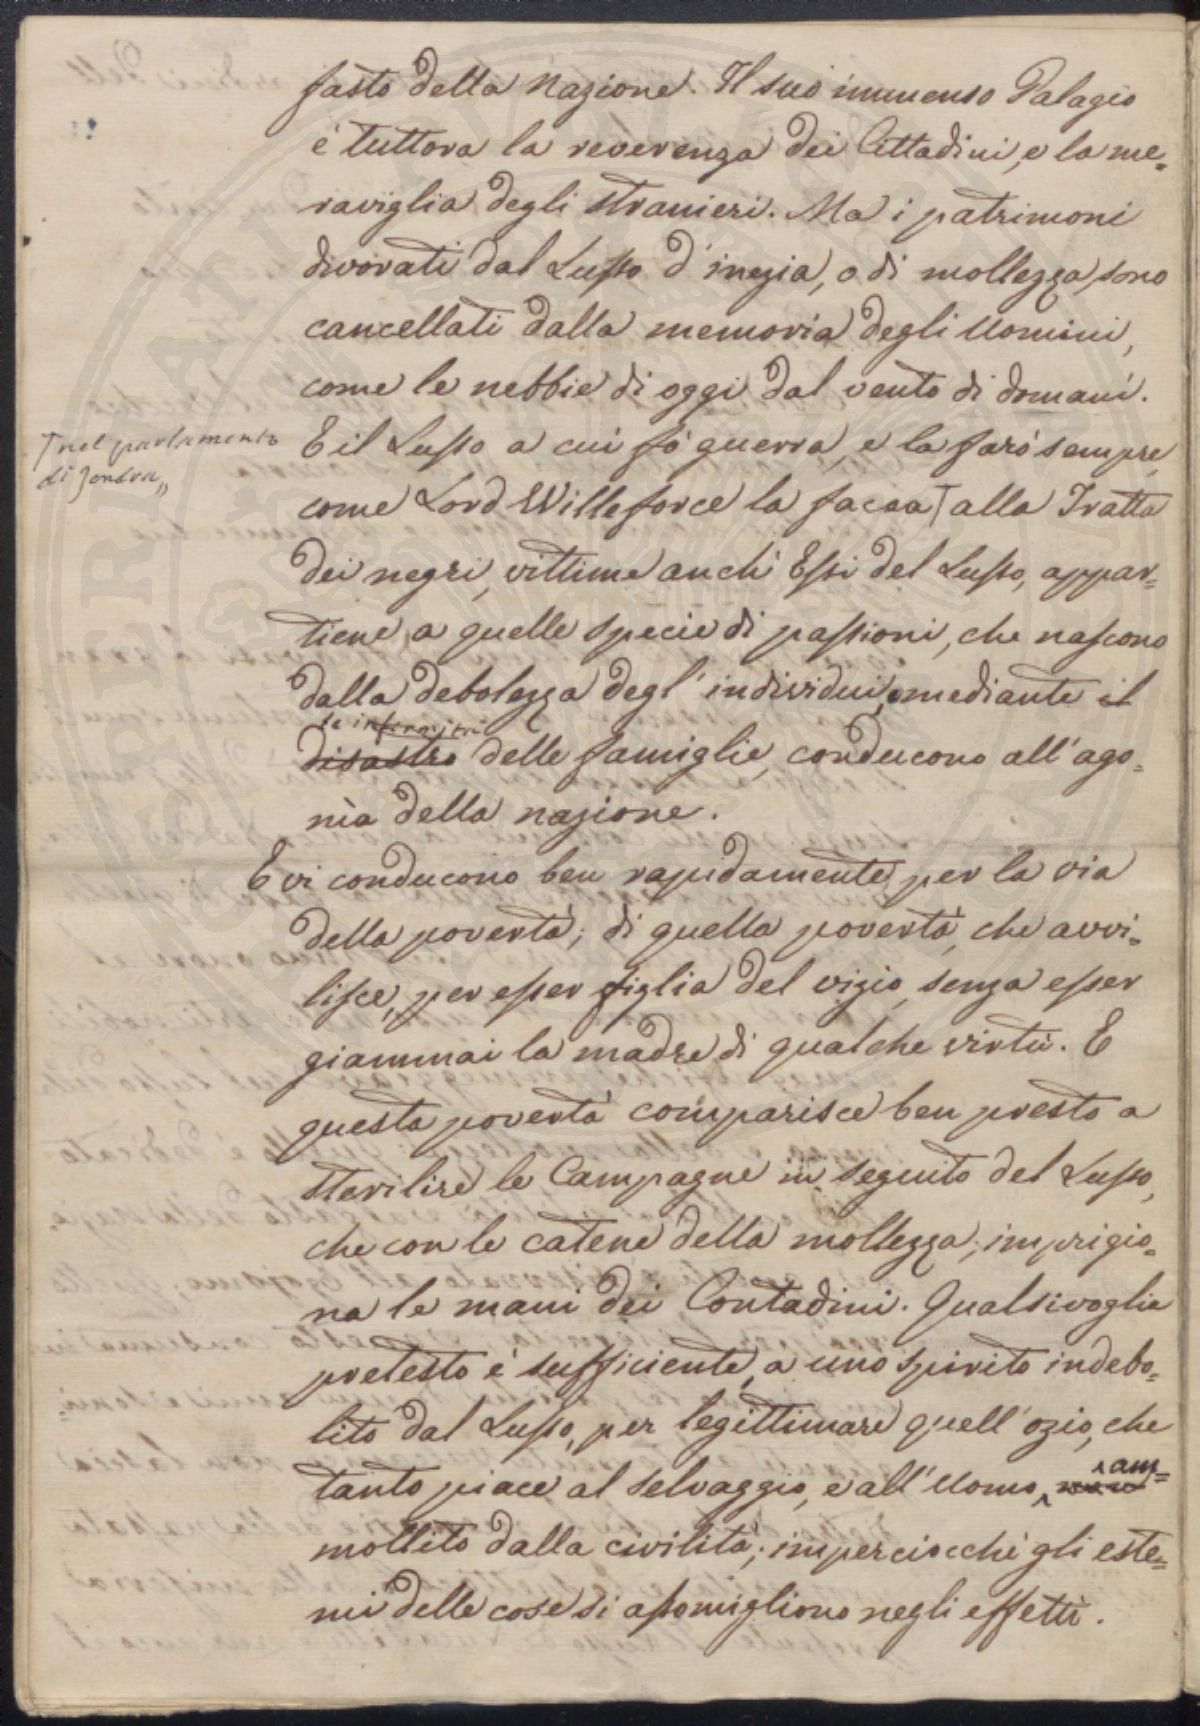 fasto della Nazione. Il suo immenso Palagio
è tuttora la reverenza dei Cittadini, e la me=
raviglia degli stranieri. Ma i patrimoni
divorati dal Lusso d'inezia, o di mollezza, sono
cancellati dalla memoria degli Uomini,
come le nebbie di oggi dal vento di domani.
E il Lusso a cui fò guerra, e la farò sempre,
come Lord Willeforce la facea alla Tratta
nel parlamento
di Londra
dei negri, vittime anch' Essi del Lusso, appar=
tiene a quelle specie di passioni, che nascono
dalla debolezza degl' individui, e mediante il
le infermità
disastro delle famiglie, conducono all' ago=
nìa della nazione.
E vi conducono ben rapidamente per la via
della povertà; di quella povertà, che avvi=
lisce, per esser figlia del vizio, senza esser
giammai la madre di qualche virtù. E
questa povertà comparisce ben presto a
sterilire le Campagne in seguito del Lusso,
che con le catene della mollezza, imprigio=
na le mani dei Contadini. Qualsivoglia
pretesto è sufficiente, a uno spirito indebo=
lito dal Lusso, per legittimare quell' ozio, che
tanto piace al selvaggio, e all' Uomo, am=
mollito dalla civiltà; imperciocchè gli estre=
mi delle cose si assomigliono negli effetti.